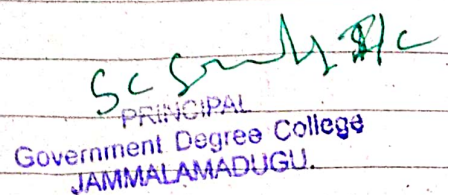 PRINCIPAL
Government Degree College
JAMMALAMADUGU.